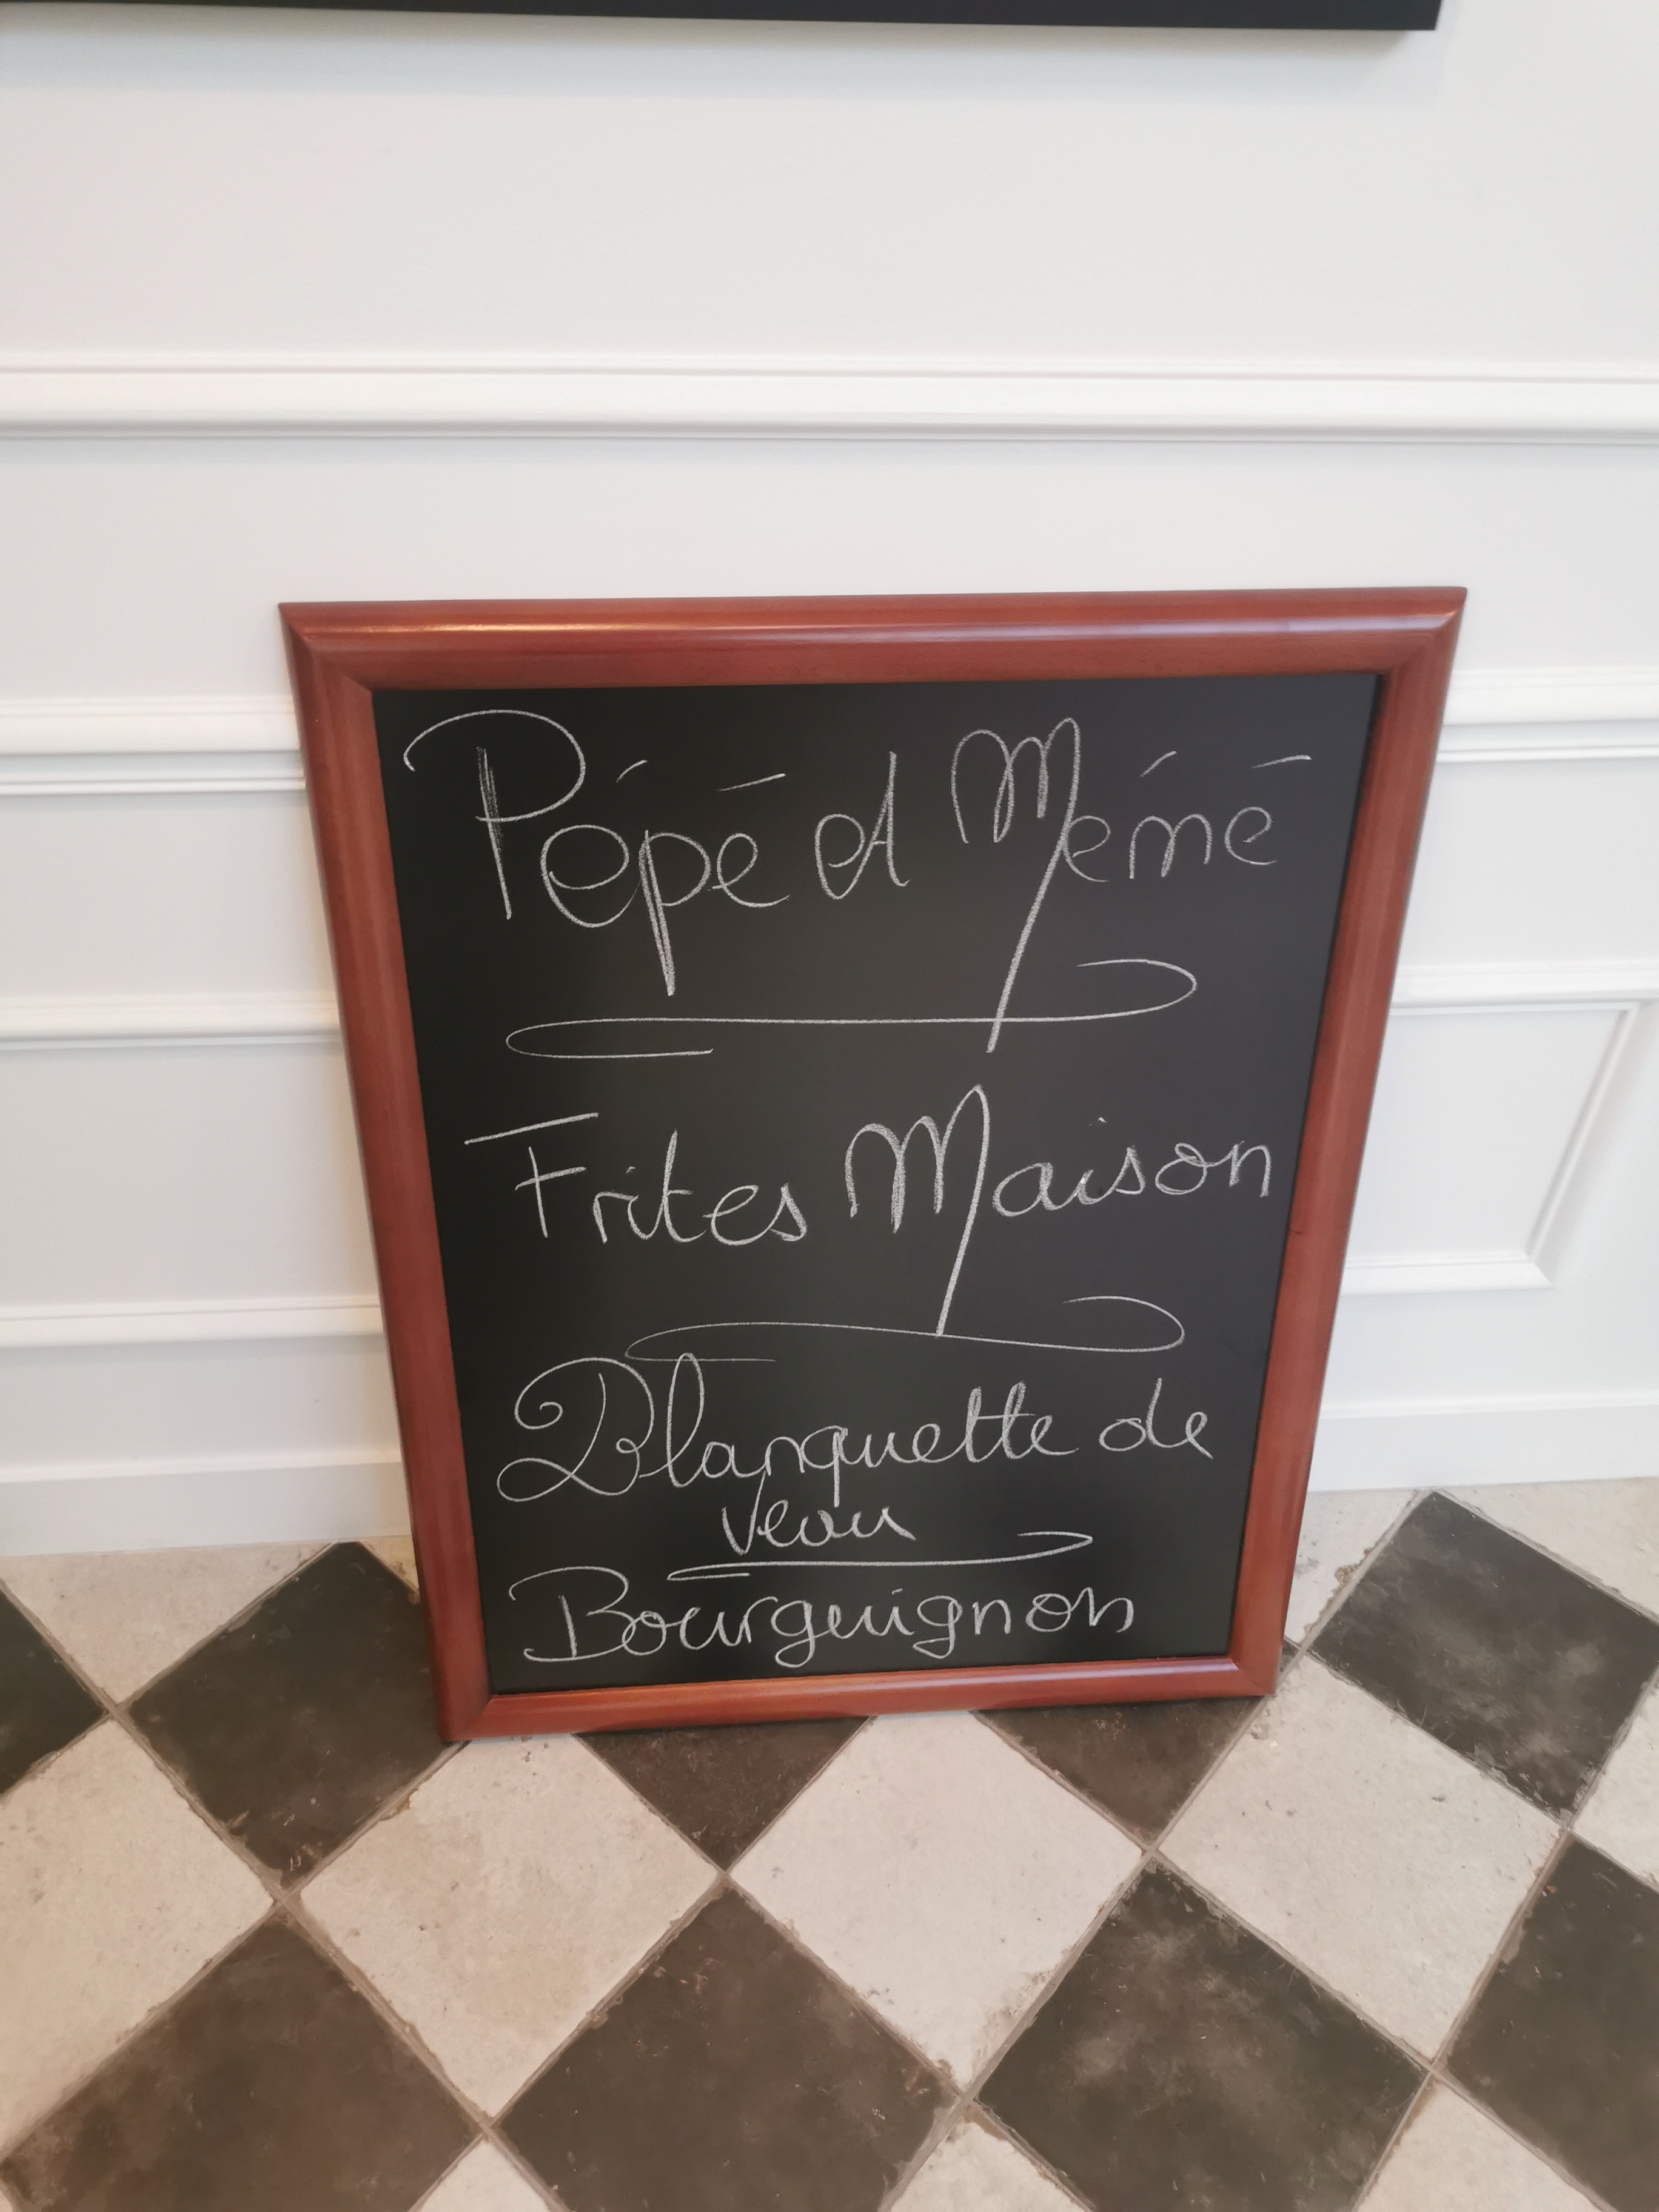 Pépé et Mémé
Frites Maison
Blanquette de
veau
Bourguignon